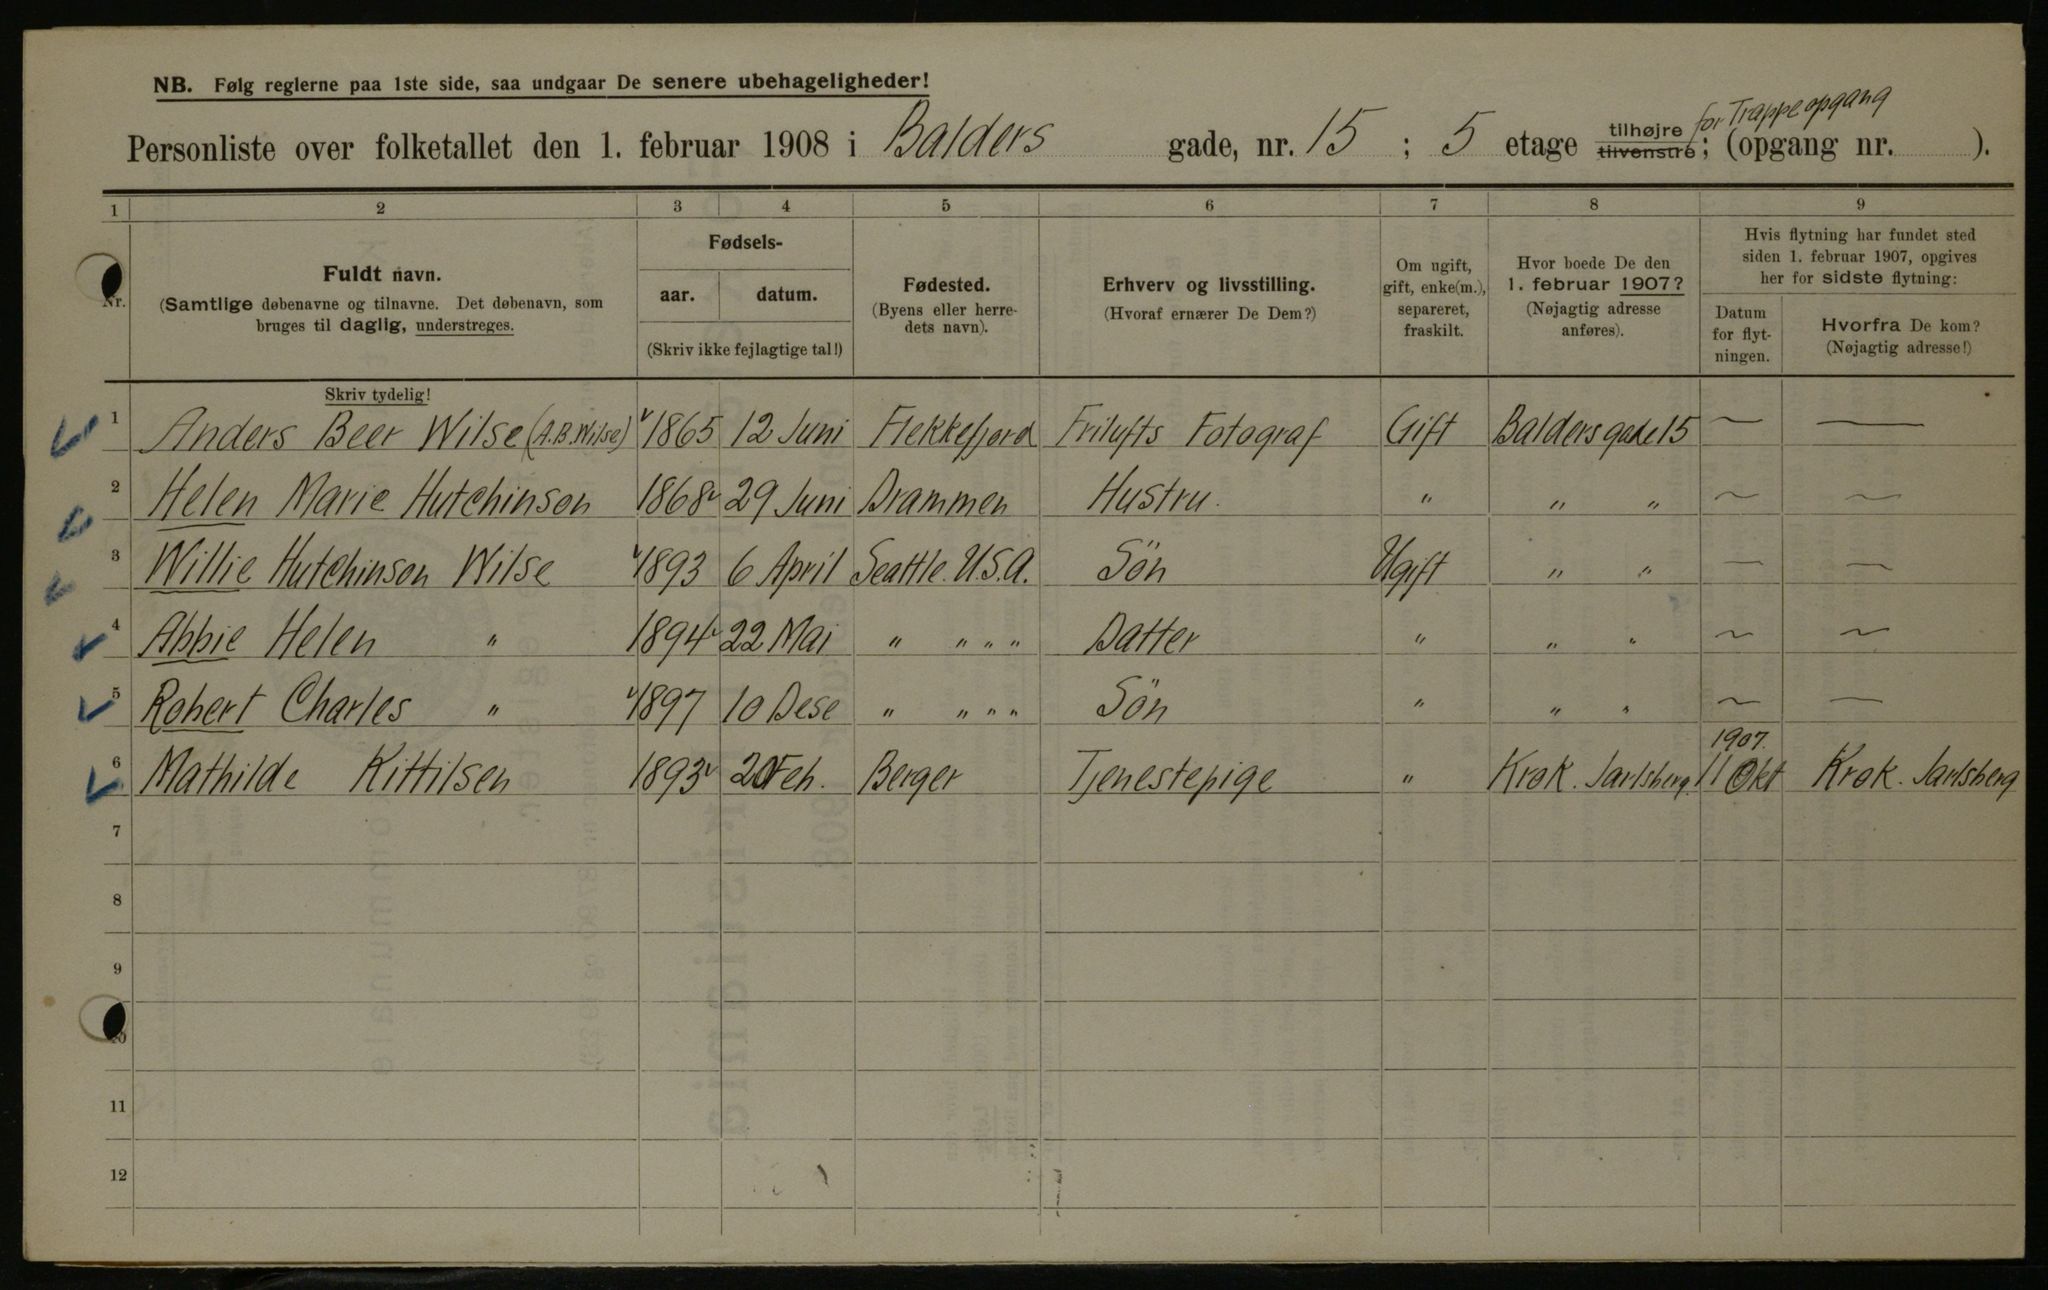 NB. Følg reglerne paa 1ste side, saa undgaar De senere ubehageligheder!
Personliste over folketallet den 1. februar 1908 i Balders gade, nr. 15 ; 5 etage tilhøjre tilvenstre for Trappeopgang ; (opgang nr. ).
1 2 3 4 5 6 7 8 9
Nr.
Fuldt navn.
(Samtlige døbenavne og tilnavne. Det døbenavn, som
bruges til daglig, understreges.
Skriv tydelig!
Fødsels-
aar. datum.
(Skriv ikke fejlagtige tal!)
Fødested.
(Byens eller herre-
dets navn).
Erhverv og livsstilling.
(Hvoraf ernærer De Dem?)
Om ugift,
gift, enke(m.),
separeret,
fraskilt.
Hvor boede De den
1. februar 1907?
(Nøjagtig adresse
anføres).
Hvis flytning har fundet sted
siden 1. februar 1907, opgives
her for sidste flytning:
Datum
for flyt-
ningen.
Hvorfra De kom?
(Nøjagtig adresse!)
1 Anders Beer Wilse (A.B.Wilse) 1865 12 Juni Flekkefjord Frilufts Fotograf Gift Baldersgade 15 ~ —
2 Helen Marie Hutchinson 1868 29 Juni Drammen Hustru. " " " ~ ~
3 Willie Hutchinson Wilse 1893 6 April Seattle. U.S.A. Sön Ugift " " — —
4 Abbie Helen " 1894 22 Mai " " " " Datter " " " ~ ~
5 Robert Charles " 1897 10 Dese " " " " Sön " " " ~ —
6 Mathilde Kittilsen 1893 20 Feb. Berger Tjenestepige " Krok. Jarlsberg. 1907. 11 Okt Krok. Jarlsberg
7
8
9
10
11
12